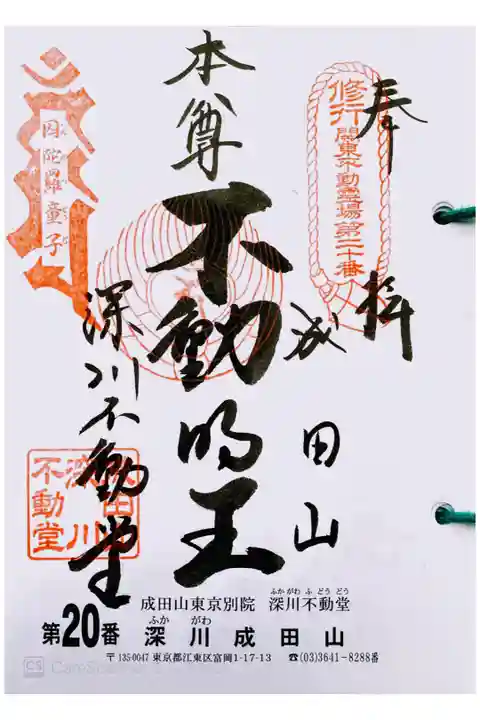 奉拝
修行
関東不動霊場第二十番
成田山
本尊
不動明王
深川不動堂
因陀羅童子
成田山
深川
不動堂
成田山東京別院 深川不動堂
ふか がわ ふ どう どう
第20番 深川成田山
ふか がわ
〒135-0047 東京都江東区富岡1-17-13 ☎(03)3641-8288番
CS CamScanner